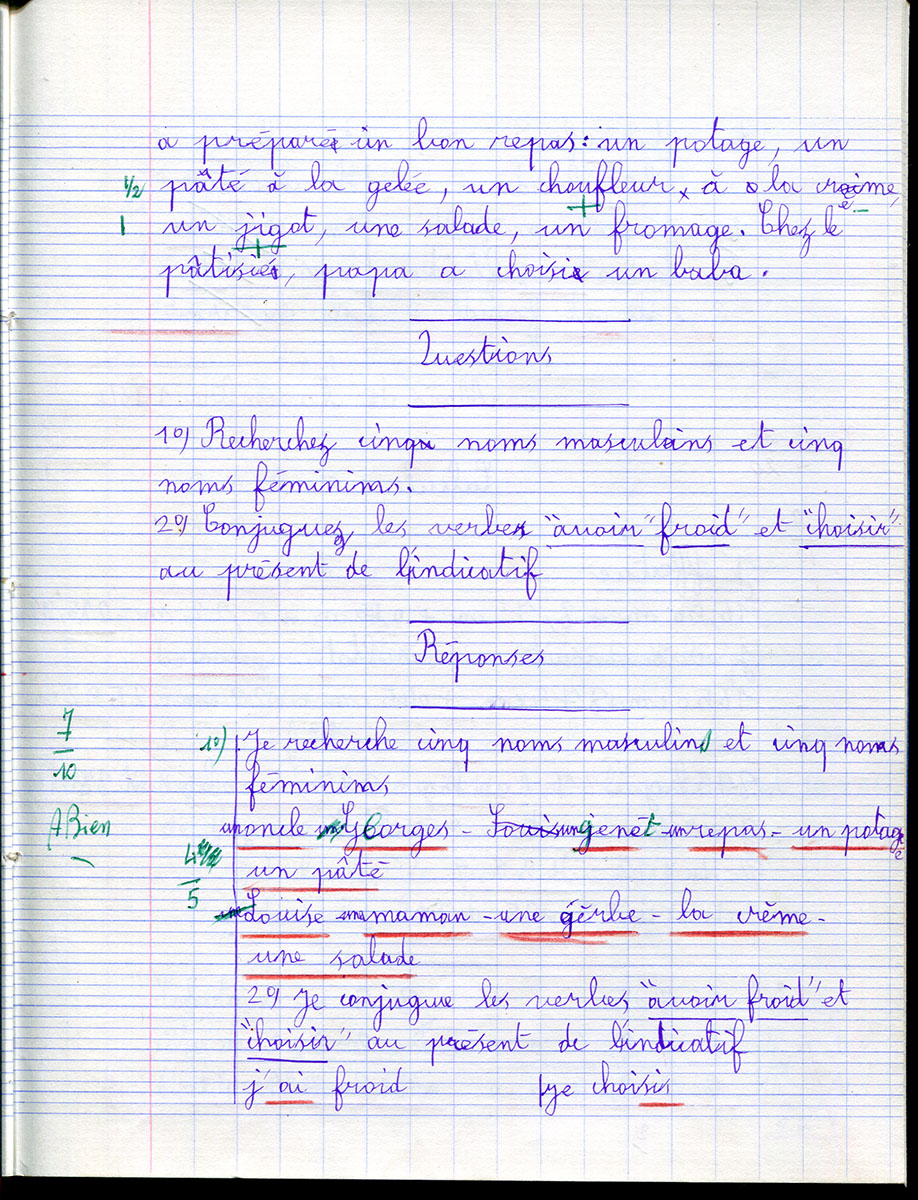 a préparé un bon repas : un potage, un
1/2 pâté à la gelée, un choufleur, à la crème,
1 un jigot, une salade, un fromage. Chez le
pâtisié, papa a choisi un baba.
Questions
1º) Recherchez cinq noms masculins et cinq
noms féminims.
2º) Conjuguez les verbes "avoir" froid" et "choisir"
au présent de l'indicatif
Réponses
7/10
A Bien
1º) Je recherche cinq noms masculins et cinq noms
féminims
un oncle Georges - Louis un genêt - un repas - un potage
4
5
un pâté
Louise une maman - une gerbe - la crème -
une salade
2º) Je conjugue les verbes "avoir froid" et
"choisir" au présent de l'indicatif
j'ai froid je choisis